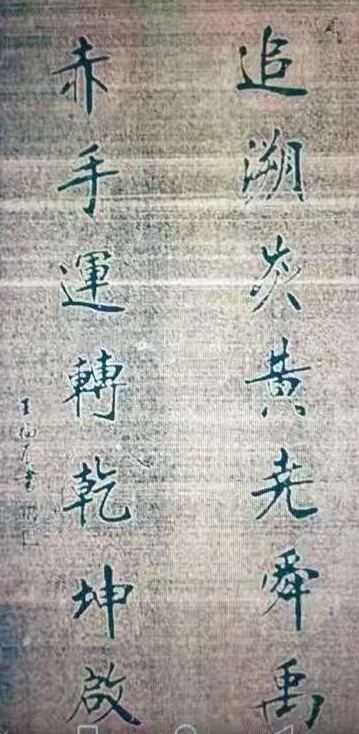 追溯炎黃堯舜禹
赤手運轉乾坤啟